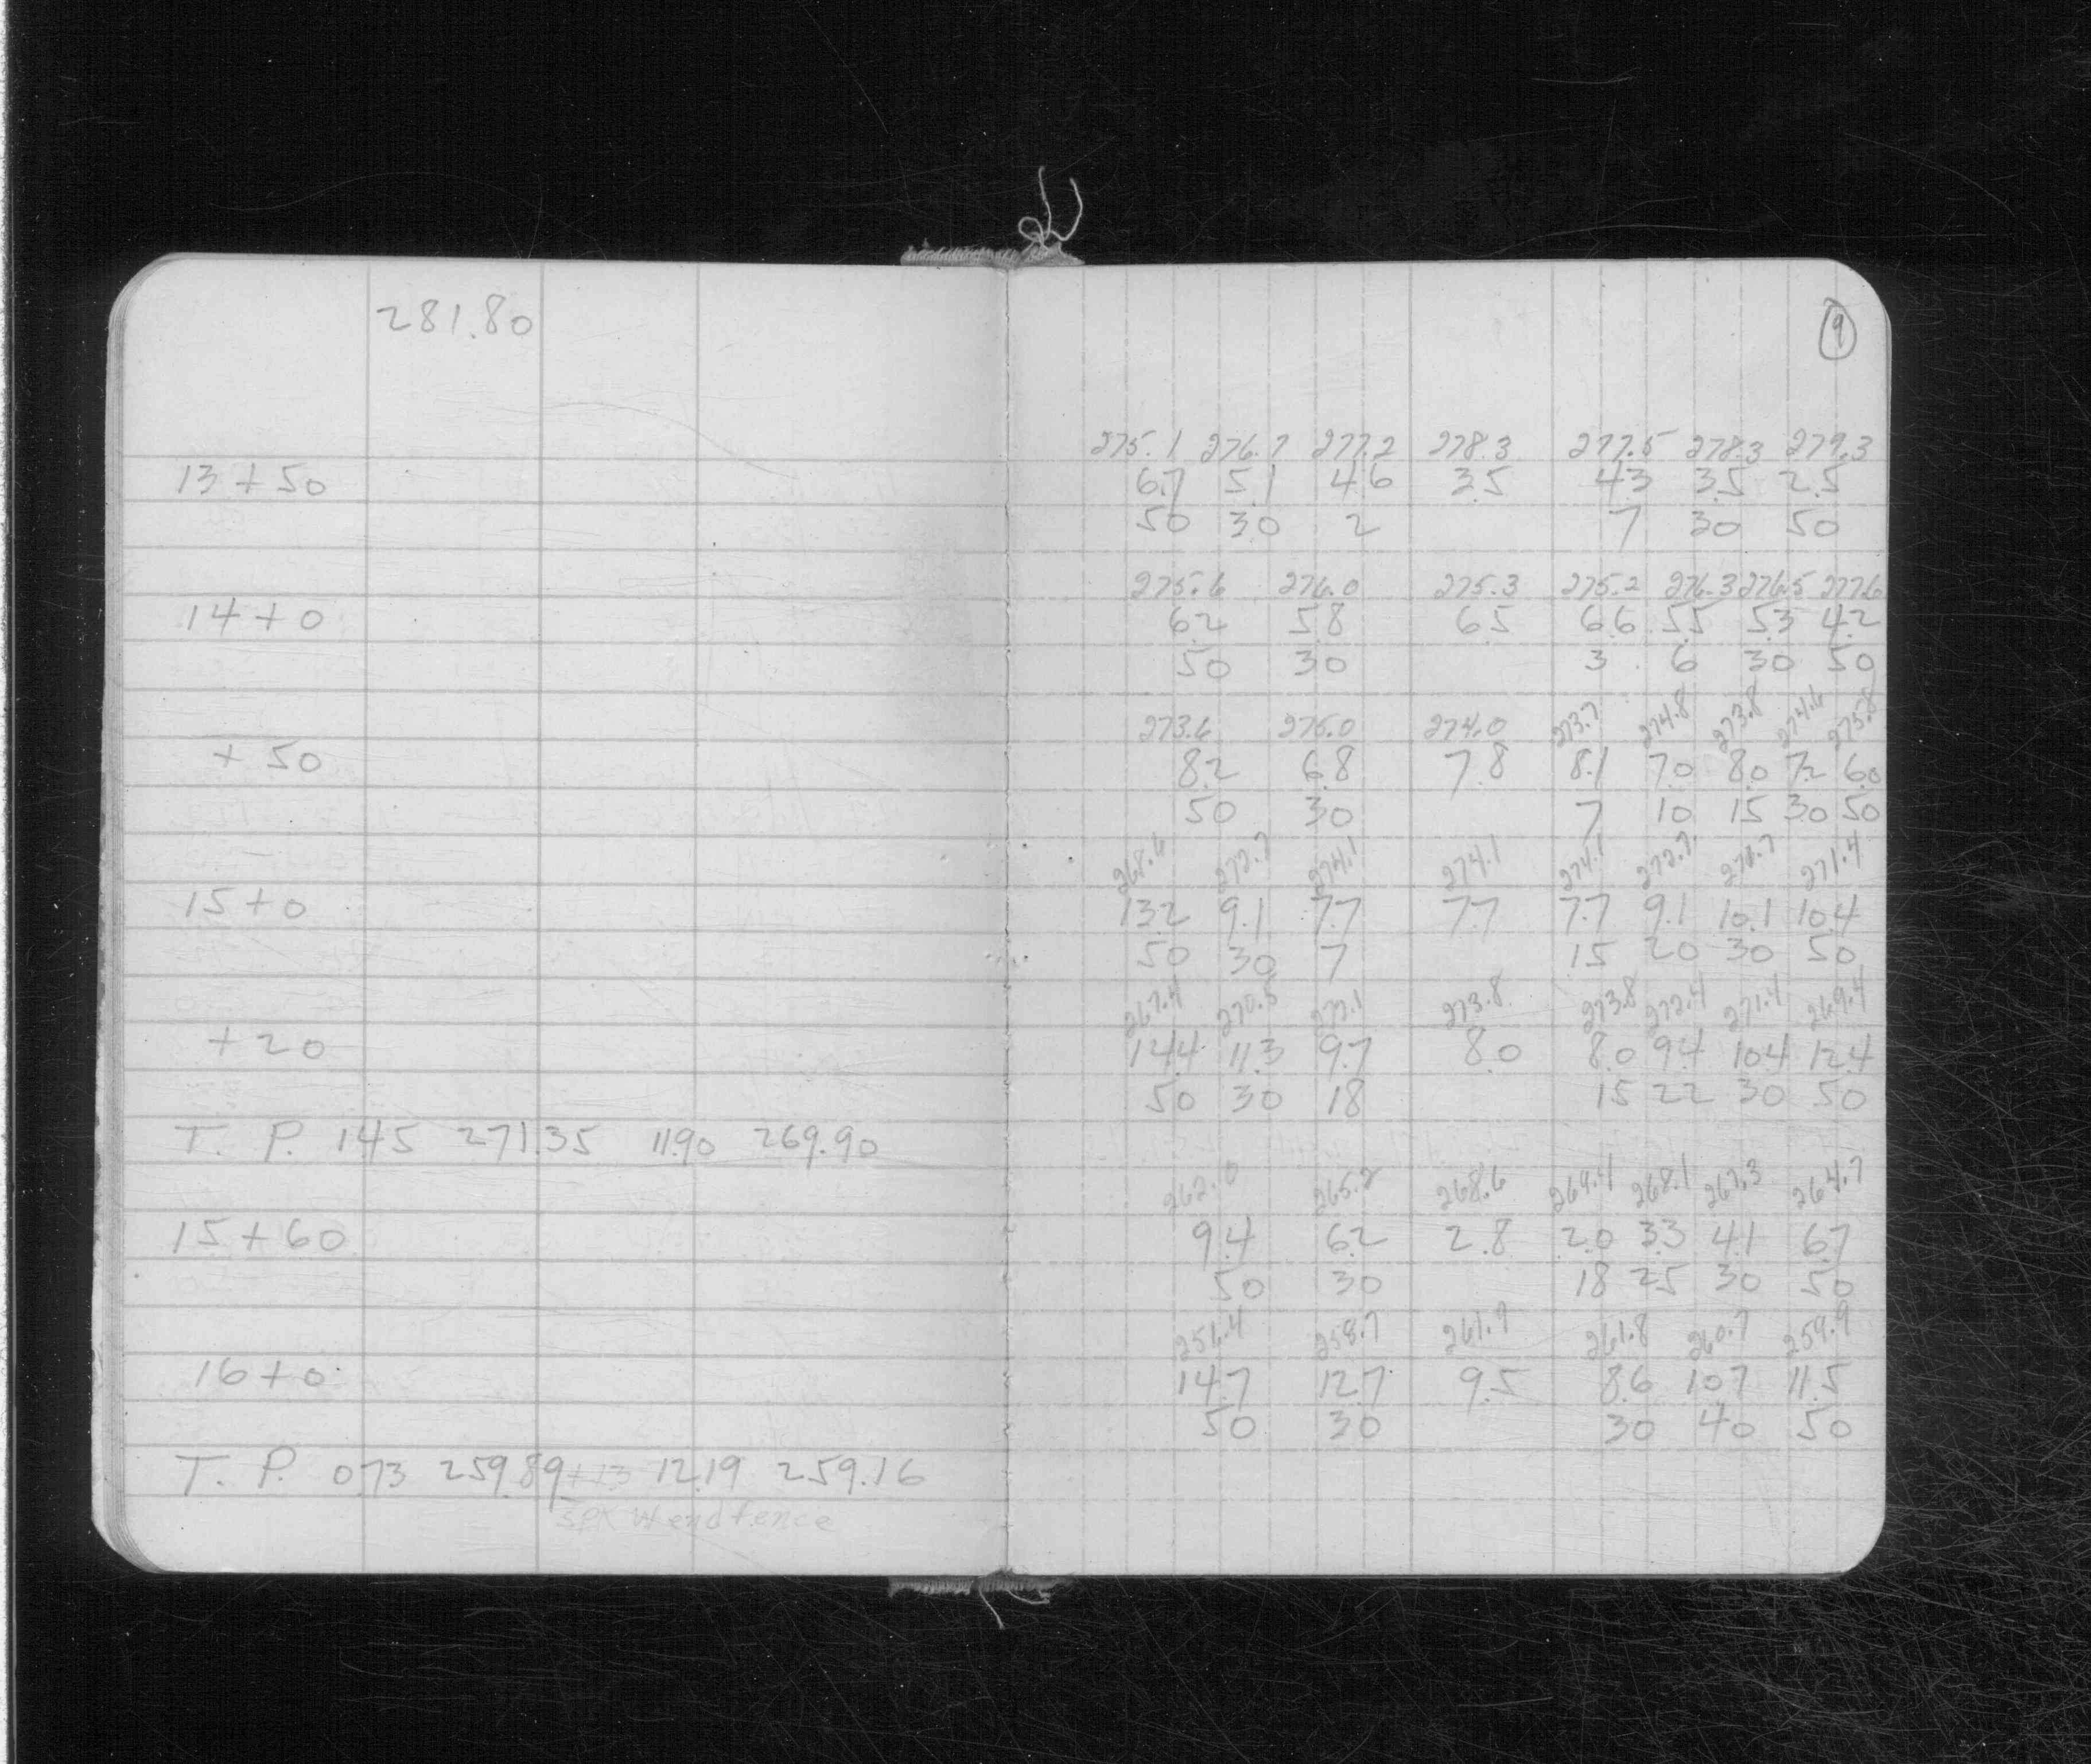 281.80
9
275.1 276.7 277.2 278.3 277.5 278.3 279.3
13+50 6.7 5.1 4.6 3.5 4.3 3.5 2.5
50 30 2 7 30 50
275.6 276.0 275.3 275.2 276.3 276.5 277.6
14+0 6.2 5.8 6.5 6.6 5.5 5.3 4.2
50 30 3 6 30 50
273.6 275.0 274.0 273.7 274.8 273.8 274.6 275.8
+50 8.2 6.8 7.8 8.1 7.0 8.0 7.2 6.0
50 30 7 10 15 30 50
268.6 272.7 274.1 274.1 274.1 272.7 271.4
15+0 13.2 9.1 7.7 7.7 7.7 9.1 10.1 10.4
50 30 7 15 20 30 50
267.4 270.5 272.1 273.8 273.8 272.4 271.4 269.4
+20 14.4 11.3 9.7 8.0 8.0 9.4 10.4 12.4
50 30 18 15 22 30 50
T. P. 1.45 271.35 11.90 269.90
262.0 265.2 268.6 269.4 268.1 267.3 264.7
15+60 9.4 6.2 2.8 2.0 3.3 4.1 6.7
50 30 18 25 30 50
256.4 258.7 261.9 261.8 260.7 259.9
16+0 14.7 12.7 9.5 8.6 10.7 11.5
50 30 30 40 50
T. P. 0.73 259.89 12.19 259.16
SPK W end fence